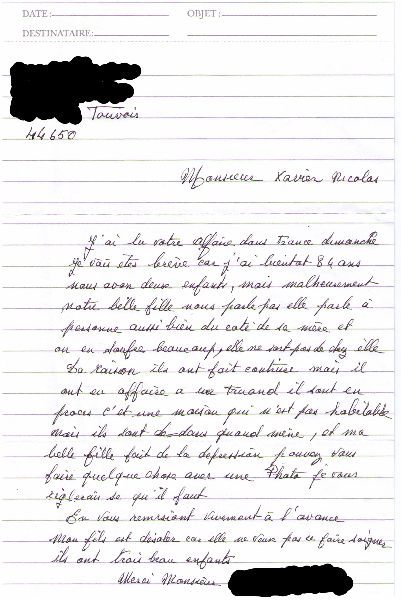 DATE : OBJET :
DESTINATAIRE :
Touvois
44650
Monsieur Xavier Nicolas
J'ai lu votre affaire dans France dimanche
je vais êtes brève car j'ai bientot 84 ans
nous avon deux enfants, mais malheureusement
notre belle fille nous parle pas elle parle à
personne aussi bien du coté de sa mère et
on en soufre beaucoup, elle ne sort pas de chez elle
La raison ils ont fait contruire mais il
ont eu affaire a une truand il sont en
proces c'et une maison qui n'est pas habitable
mais ils sont de-dans quand même, et ma
belle fille fait de la depression pouvez vous
faire quelque chose avec une Photo je vous
riglerais se qu'il faut
En vous remrsiant vivement à l'avance
Mon fils est désoler car elle ne veux pas ce faire soigner
ils ont trois beau enfants
Merci Monsieur.